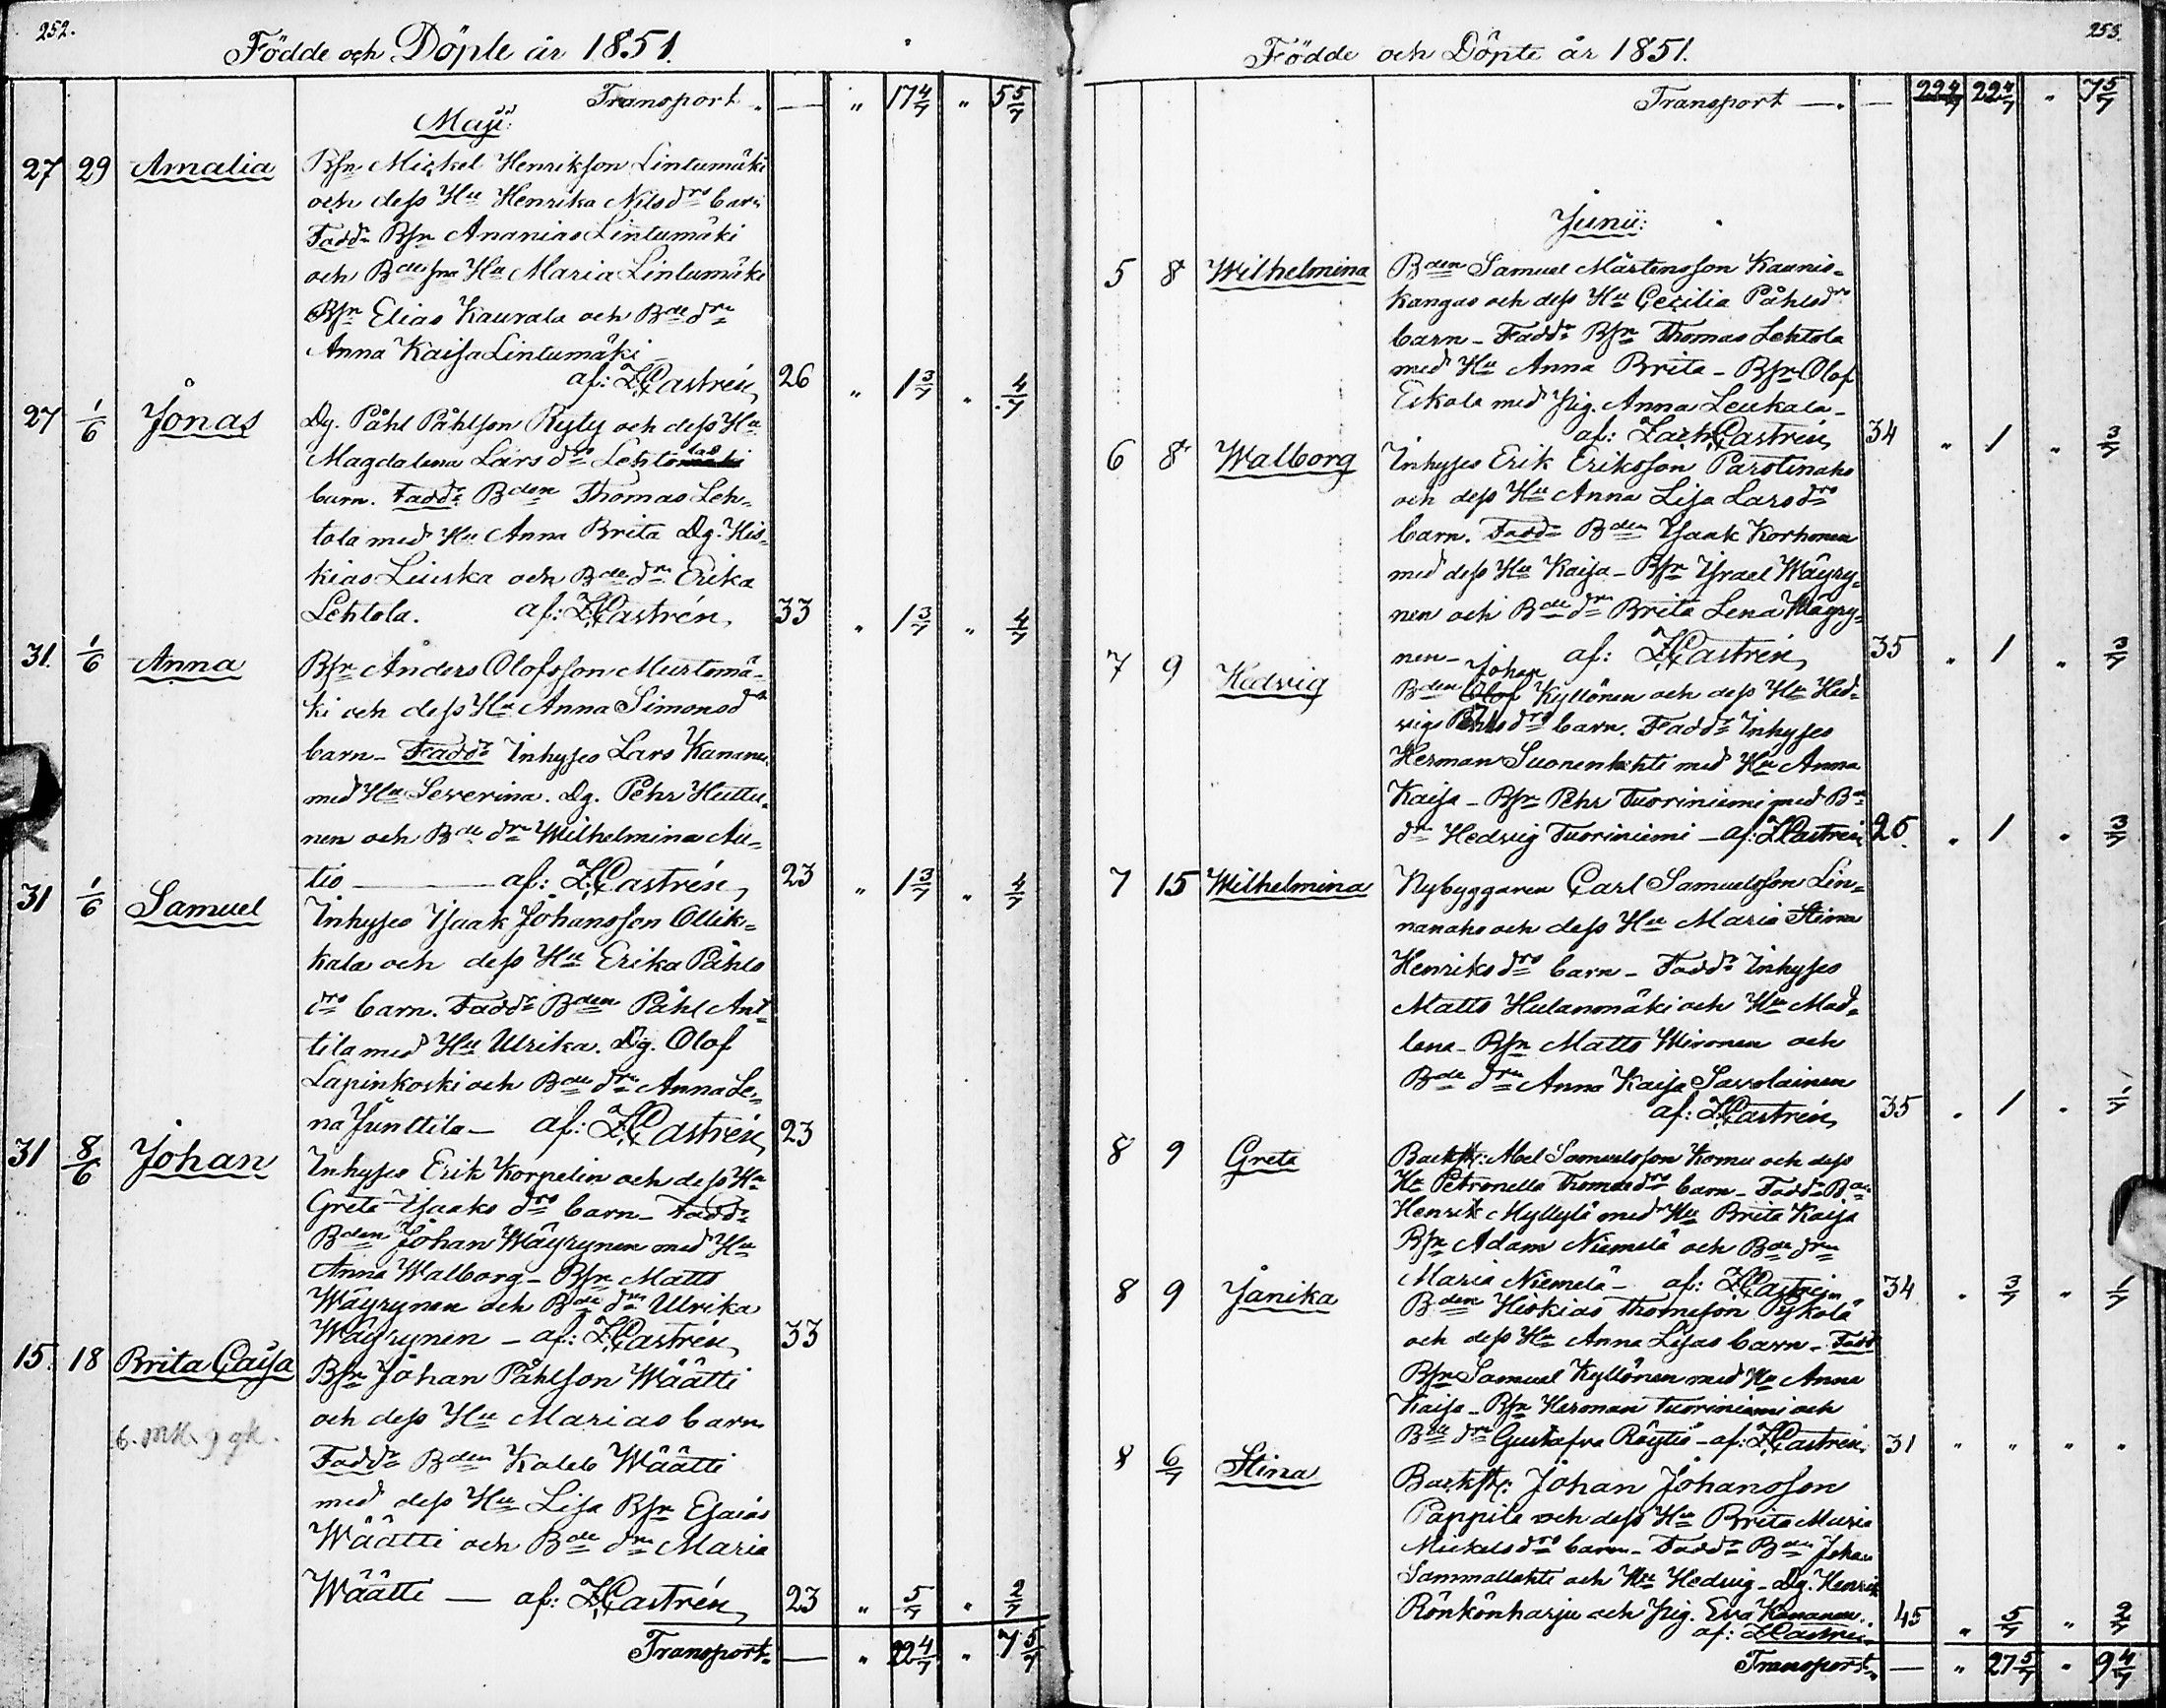 252.
Födde och Döpte år 1851.
Transport. — " 17 4/7 " 5 5/7
Maji:
27 29 Amalia Bsn Mickel Henriksson Lintumäki
och dess Hu Henrika Nilsdrs barn
Fadd: Bsn Ananias Lintumäki
och Bdesns Hu Maria Lintumäki
Bsn Elias Kaurala och Bde dn
Anna Kaisa Lintumäki
af: Z Castrén, 26 " 1 3/7 " 4/7
27 1/6 Jonas Dg. Påhl Påhlsson Ryty och dess Hu
Magdalena Lars drs Lehtolas
barn. Fadd: Bden Thomas Leh-
tola med Hu Anna Brita Dg. His-
kias Leiuska och Bde dn Erika
Lehtola. af: Z Castrén, 33 " 1 3/7 " 4/7
31. 1/6 Anna Bsn Anders Olofsson Murtomä-
ki och dess Hu Anna Simonsdrs
barn - Fadd: Inhyses Lars Kananen
med Hu Severina. Dg. Pehr Huttu-
nen och Bde dn Wilhelmina Au-
tio — af: Z Castrén, 23 " 1 3/7 " 4/7
31 1/6 Samuel Inhyses Isaak Johansson Ollik-
kala och dess Hu Erika Påhls
drs barn. Fadd: Bden Påhl Ant-
tila med Hu Ulrika. Dg. Olof
Lapinkoski och Bde dn Anna Le-
na Junttila - af: Z Castrén, 23
31 8/6 Johan Inhyses Erik Korpelin och dess Hu
Greta Isaaks drs barn - Fadd:
Bden Johan Wäyrynen med Hu
Anna Walborg - Bsn Matts
Wäyrynen och Bde dn Ulrika
Wäyrynen - af: Z Castrén, 33
15. 18 Brita Caisa Bsn Johan Påhlsson Wäätti
och dess Hu Marias barn
Fadd: Bden Kaleb Wäätti
med dess Hu Lisa Bsn Esaias
Wäätti och Bde dn Maria
Wäätti — af: Z Castrén, 23 " 5/7 " 2/7
Transport. — " 22 4/7 " 7 5/7
253.
Födde och Döpte år 1851.
Transport — — 22 4/7 22 4/7 " 7 5/7
Junii:
5 8 Wilhelmina Bden Samuel Mårtensson Kaunis-
kangas och dess Hu Cecilia Påhlsdrs
barn - Fadd: Bsn Thomas Lehtola
med Hu Anna Brita - Bsn Olof
Eskola med Pig. Anna Leukala -
af: Zach Castrén, 34 " 1 " 3/7
6 8 Walborg Inhyses Erik Eriksson Parotinaho
och dess Hu Anna Lisa Larsdrs
barn. Fadd: Bden Isaak Korhonen
med dess Hu Kaisa - Bsn Israel Wäyry-
nen och Bde dn Brita Lena Wäyry-
nen - af: Z Castrén, 35 " 1 " 3/7
7 9 Hedvig Bden Olof Johan Kyllönen och dess Hu Hed-
vigs Påhls drs barn. Fadd: Inhyses
Herman Suonenlahti med Hu Anna
Kaisa - Bsn Pehr Tuoriniemi med Bde
dn Hedvig Tuoriniemi - af: Z Castrén 25. " 1 " 3/7
7 15 Wilhelmina Nybyggaren Carl Samuelsson Lin-
nanaho och dess Hu Maria Stina
Henriksdrs barn - Fadd: Inhyses
Matts Hulanmäki och Hu Mad-
lena - Bsn Matts Mironen och
Bde dn Anna Kaisa Savolainen
af: Z Castrén, 35 " 1 " 1/7
8 9 Greta Backst: Abel Samuelsson Komu och dess
Hu Petronella Thomas drs barn - Fadd: Bden
Henrik Myllylä med Hu Brita Kaisa
Bsn Adam Niemelä och Bde dn
Maria Niemelä - af: Z Castrén 34 " 3/7 " 1/7
8 9 Janika Bden Hiskias Thomsson Pyskolä
och dess Hu Anna Lisas barn - Fadd
Bsn Samuel Kyllönen med Hu Anna
Kaisa - Bsn Herman Tuoriniemi och
Bde dn Gustafva Räytiö - af: Z Castrén, 31 " " " "
8 6/7 Stina Backst: Johan Johansson
Pappila och dess Hu Brita Maria
Mickelsdrs barn - Fadd: Bden Johan
Sammallahti och Hu Hedvig - Dg. Henrik
Rönkönharju och Pig. Eva Kananen.
af: Z Castrén 45 " 5/7 " 2/7
Transport. — " 27 5/7 " 9 4/7